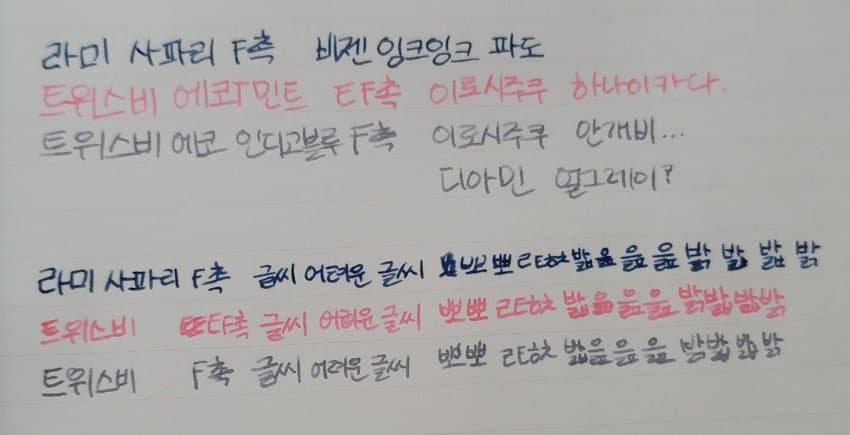 라미 사파리 F촉 비젠 잉크잉크 파도
트위스비 에코T민트 EF촉 이로시주쿠 하나이카다.
트위스비 에코 인디고블루 F촉 이로시주쿠 안개비...
디아민 얼그레이?
라미 사파리 F촉 글씨 어려운 글씨 뽀뽀 ㄹㅌㅎㅊ 밟읊읊읊 밝 밟 밟 밝
트위스비 EF촉 글씨 어려운 글씨 뽀뽀 ㄹㅌㅎㅊ 밟읊읊읊 밝밟밟밝
트위스비 F촉 글씨 어려운 글씨 뽀뽀 ㄹㅌㅎㅊ 밟읊읊읊 밟밟밝